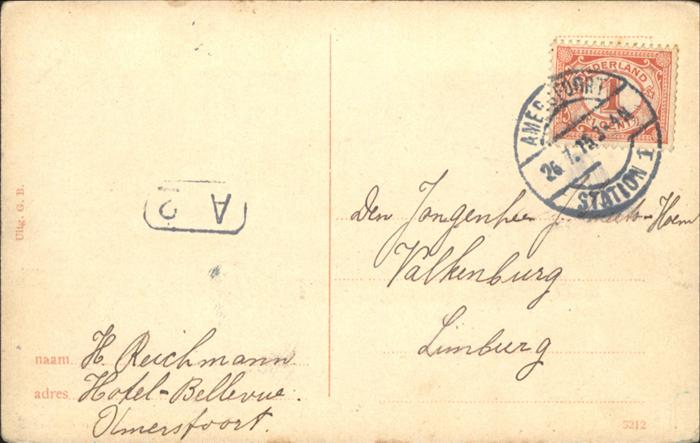 NEDERLAND
1
AMERSFOORT
STATION 1
Uitg. G. B.
A
Den Jongenheer
Valkenburg
Limburg
naam. H. Reichmann
adres. Hotel-Bellevue.
Amersfoort.
5212